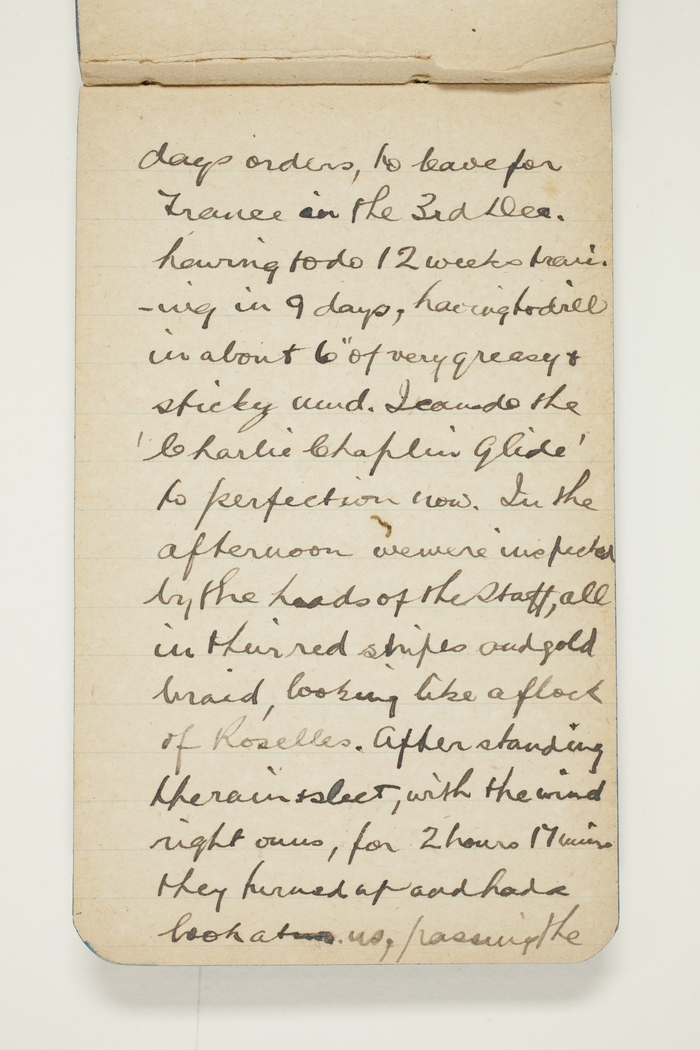 days orders, to leave for
France in the 3rd Dec.
having to do 12 weeks train-
-ing in 9 days, having to drill
in about 6" of very greasy &
sticky mud. I can do the
'Charlie Chaplin Glide'
to perfection now. In the
afternoon we were inspected
by the heads of the Staff, all
in their red stripes and gold
braid, looking like a flock
of Roselles. After standing
the rain & sleet, with the wind
right on us, for 2 hours 17 mins
they turned up and had a
look at us, passing the